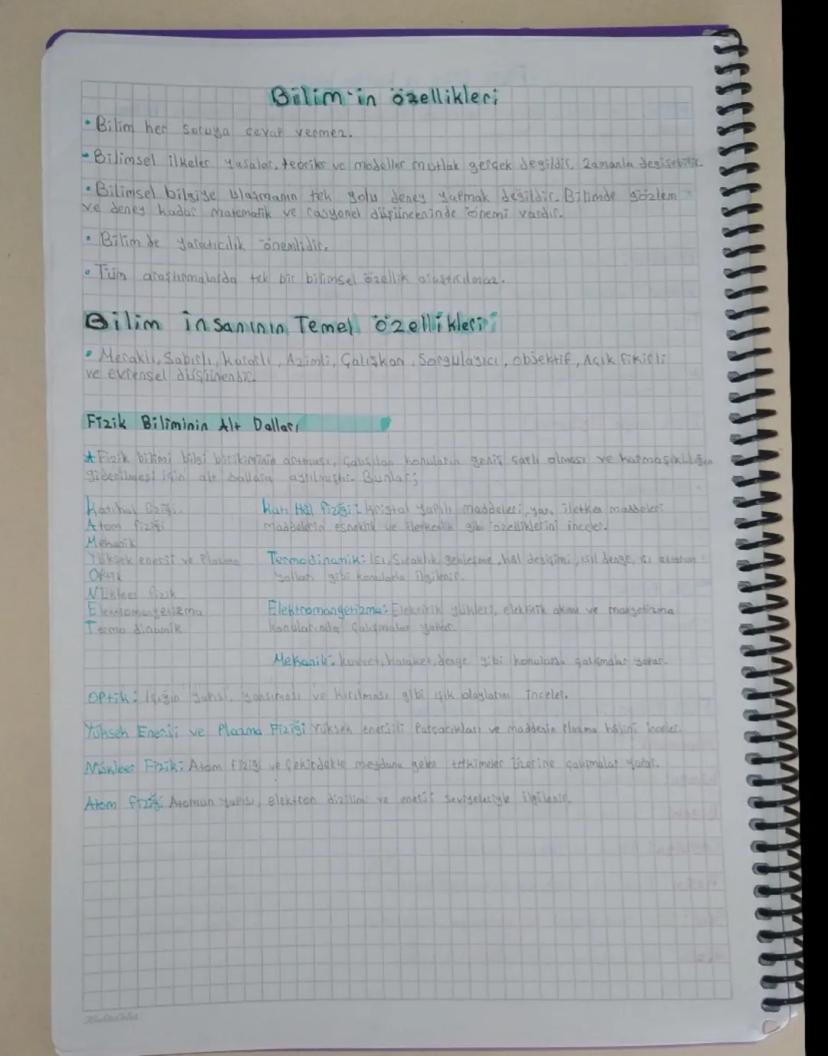 Bilim'in özellikleri
• Bilim her soruya cevap vermez.
• Bilimsel ilkeler yasalar, teoriler ve modeller mutlak gerçek değildir. Zamanla değişebilir.
• Bilimsel bilgiye ulaşmanın tek yolu deney yapmak değildir. Bilimde gözlem
ve deney kadar matematik ve rasyonel düşünceninde önemi vardır.
• Bilim de yaratıcılık önemlidir.
• Tüm araştırmalarda tek bir bilimsel özellik
Bilim insanının Temel özellikleri
• Meraklı, Sabırlı, Kararlı, Azimli, Çalışkan, Sorgulayıcı, objektif, Açık fikirli
ve evrensel
Fizik Biliminin Alt Dalları
★ Fizik bilimi bilgi birikiminin artması, çalışılan konuların geniş olması ve karmaşıklığın
giderilmesi için alt dallara ayrılmıştır. Bunlar;
Katı hal fiziği
Atom fiziği
Mekanik
Yüksek enerji ve Plazma
Optik
Nükleer fizik
Termo dinamik
Katı Hal fiziği: Kristal yapılı maddeleri, yarı iletken maddeleri
maddelerin esneklik ve iletkenlik gibi özelliklerini inceler.
Termodinamik: Isı, Sıcaklık, genleşme, hal değişimi, ısıl denge, ısı
yolları gibi konularla ilgilenir.
Elektromangetizma: Elektrik yükleri, elektrik akımı ve
konularında çalışmalar yapar.
Mekanik: kuvvet, hareket, denge gibi konularda çalışmalar yapar.
Optik: Işığın yansıması ve kırılması gibi ışık olaylarını inceler.
Yüksek Enerji ve Plazma Fiziği Yüksek enerjili Parçacıkları ve maddenin Plazma halini inceler.
Nükleer Fizik: Atom fiziği ve Çekirdekte meydana gelen tepkimeler üzerine çalışmalar yapar.
Atom fiziği: Atomun yapısı, elektron dizilimi ve enerji seviyeleriyle ilgilenir.